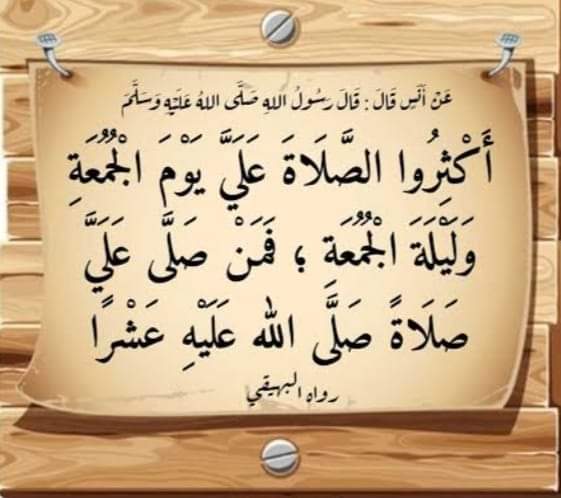 عَنْ أَنَسٍ قَالَ : قَالَ رَسُولُ اللهِ صَلَّى اللهُ عَلَيْهِ وَسَلَّمَ
أَكْثِرُوا الصَّلَاةَ عَلَيَّ يَوْمَ الْجُمُعَةِ
وَلَيْلَةَ الْجُمُعَةِ ؛ فَمَنْ صَلَّى عَلَيَّ
صَلَاةً صَلَّى الله عَلَيْهِ عَشْرًا
رواه البيهقي